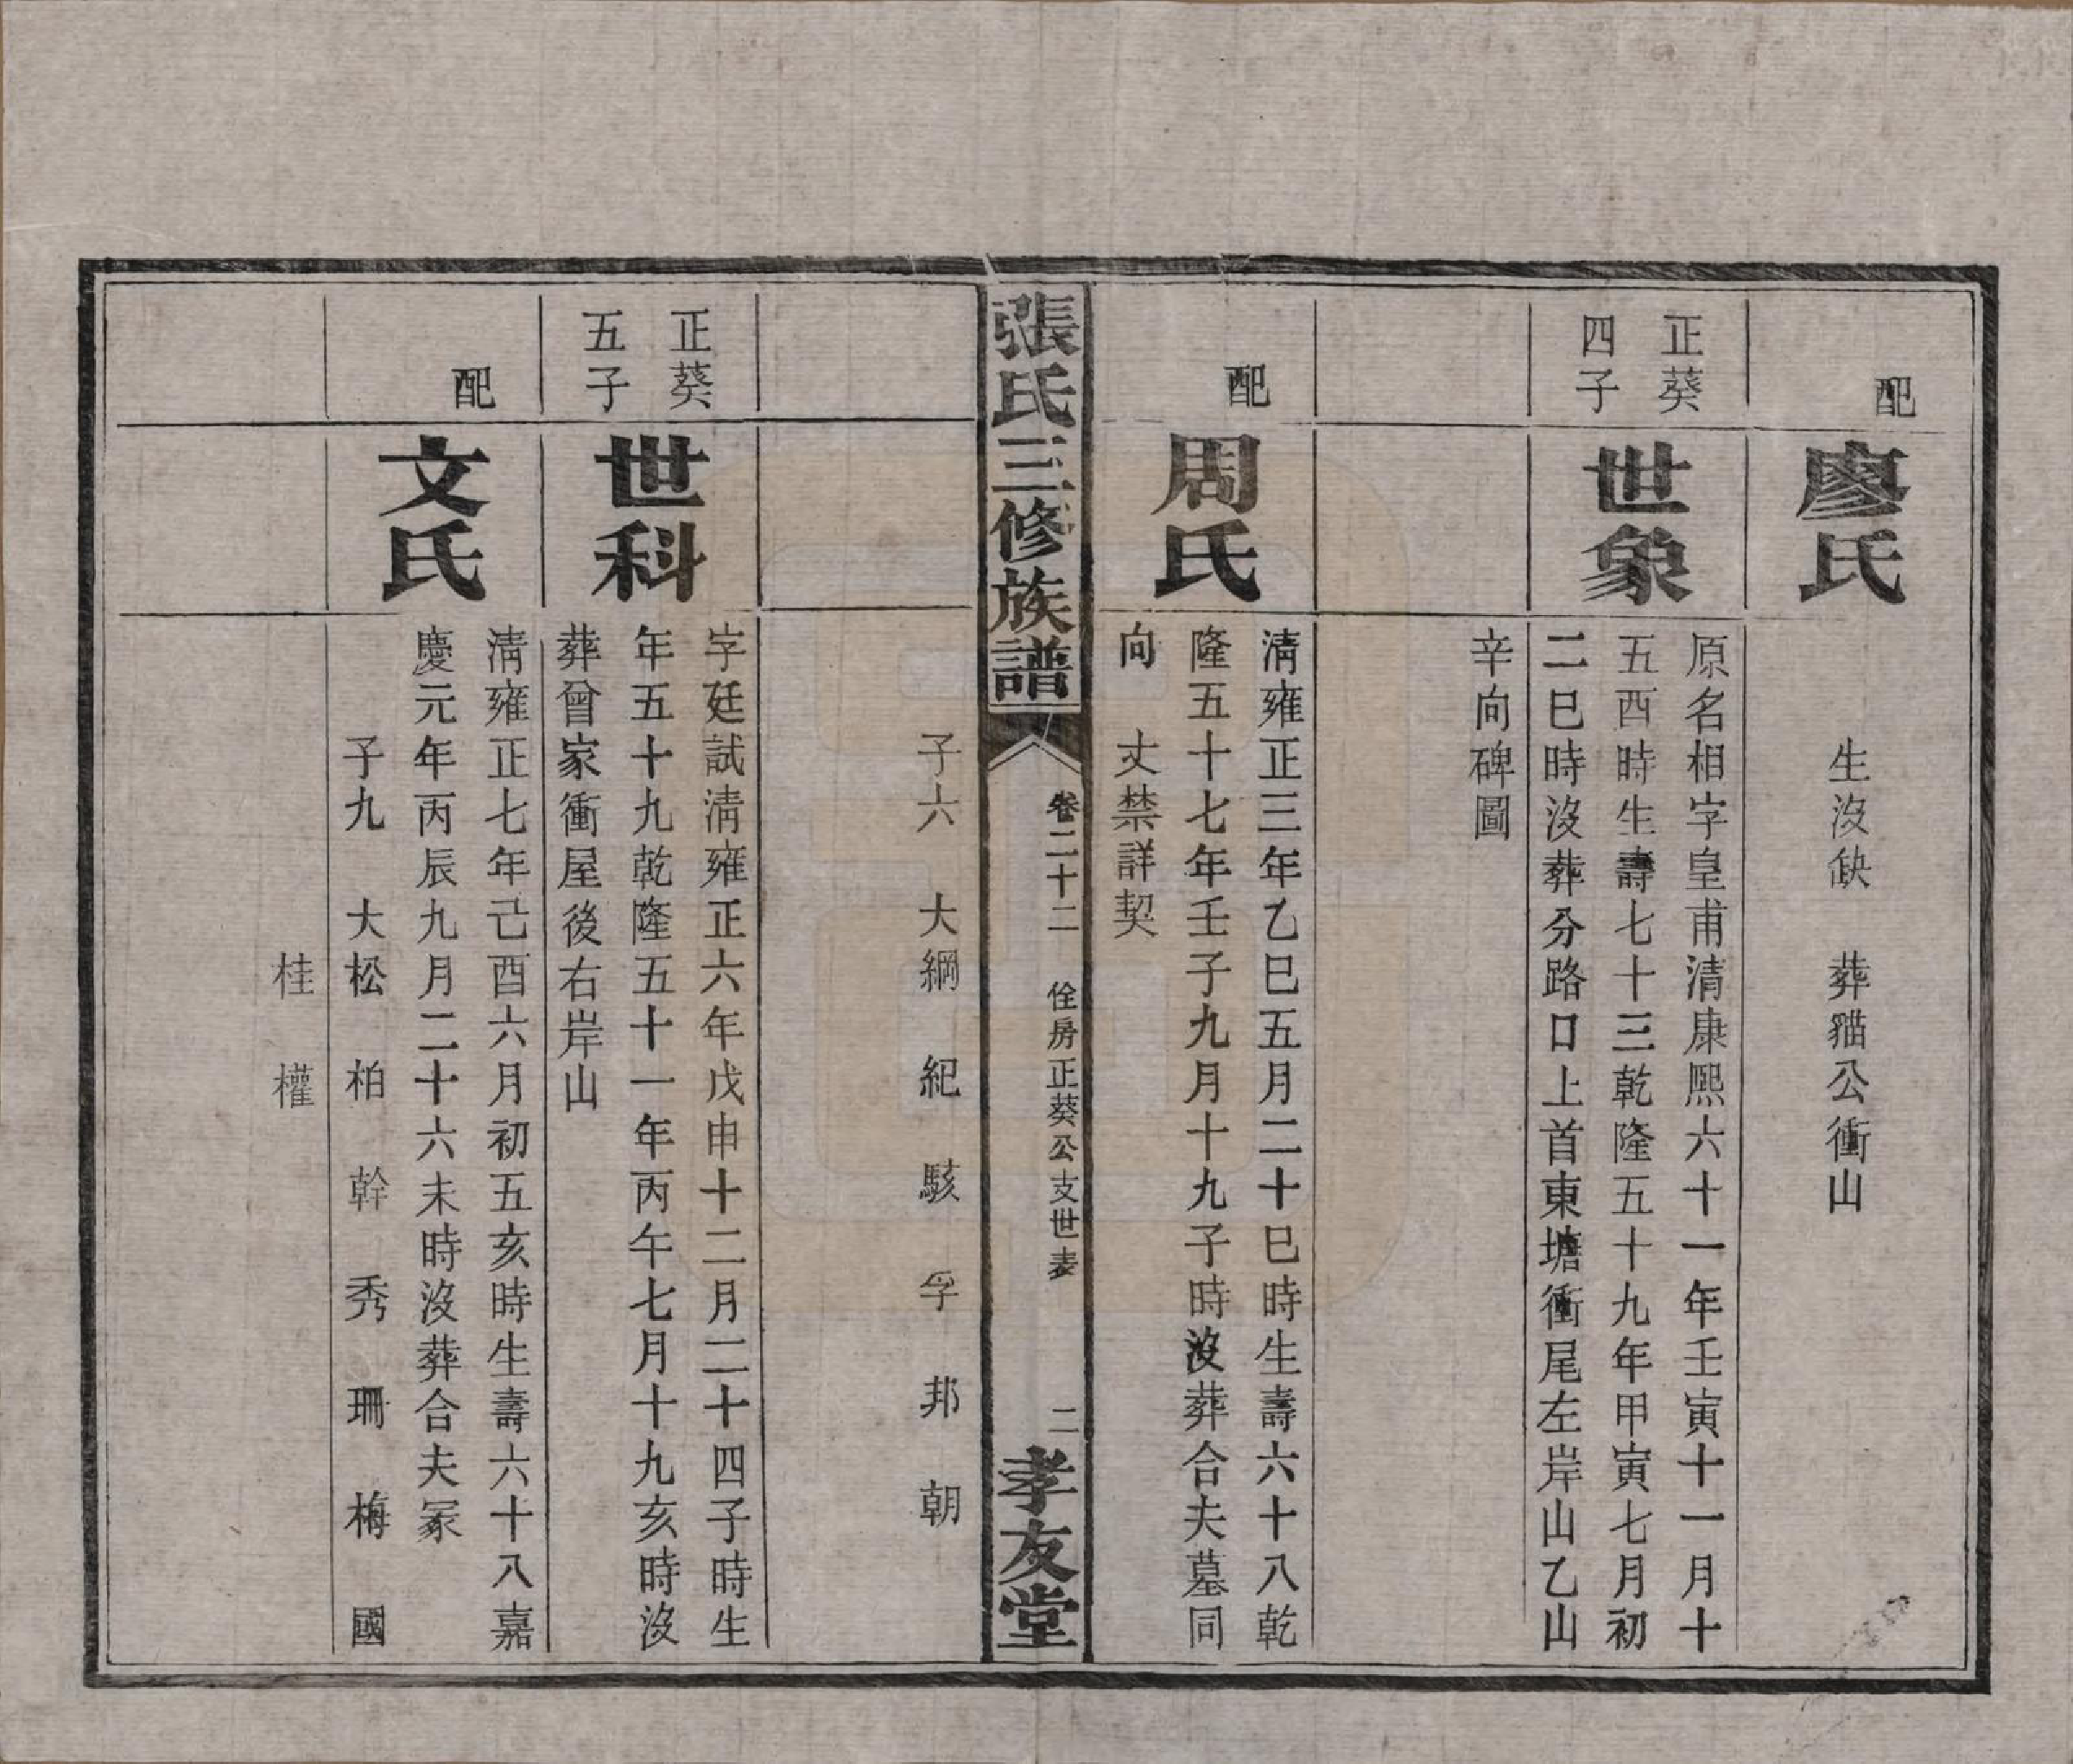 配
廖氏
生沒缺　葬貓公衝山
正葵
四子
世象
原名相字皇甫清康熙六十一年壬寅十一月十
五酉時生壽七十三乾隆五十九年甲寅七月初
二巳時沒葬分路口上首東塘衝尾左岸山乙山
辛向碑圖
配
周氏
淸雍正三年乙巳五月二十巳時生壽六十八乾
隆五十七年壬子九月十九子時沒葬合夫墓同
向　丈禁詳契
張氏三修族譜
卷二十二　佺房正葵公支世表
二
孝友堂
子六　大綱　紀　駭　孚　邦　朝
正葵
五子
世科
字廷試淸雍正六年戊申十二月二十四子時生
年五十九乾隆五十一年丙午七月十九亥時沒
葬曾家衝屋後右岸山
配
文氏
淸雍正七年己酉六月初五亥時生壽六十八嘉
慶元年丙辰九月二十六未時沒葬合夫冢
子九　大松　柏　幹　秀　珊　梅　國
桂　權